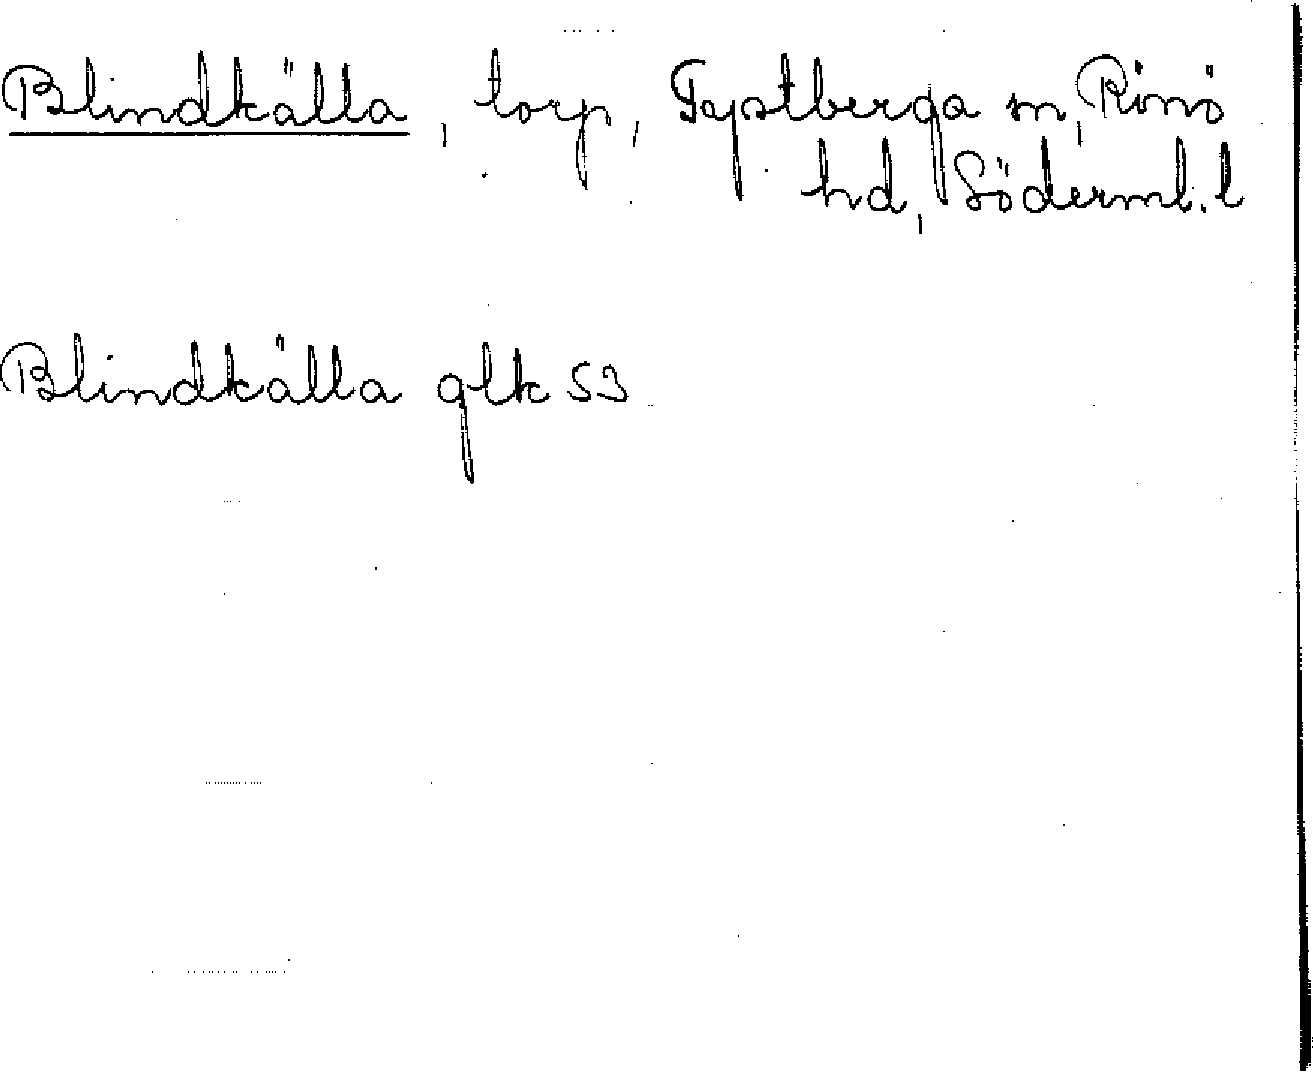 Blindkälla, torp, Tystberga sn, Rönö
hd, Söderml. l
Blindkälla glk 53